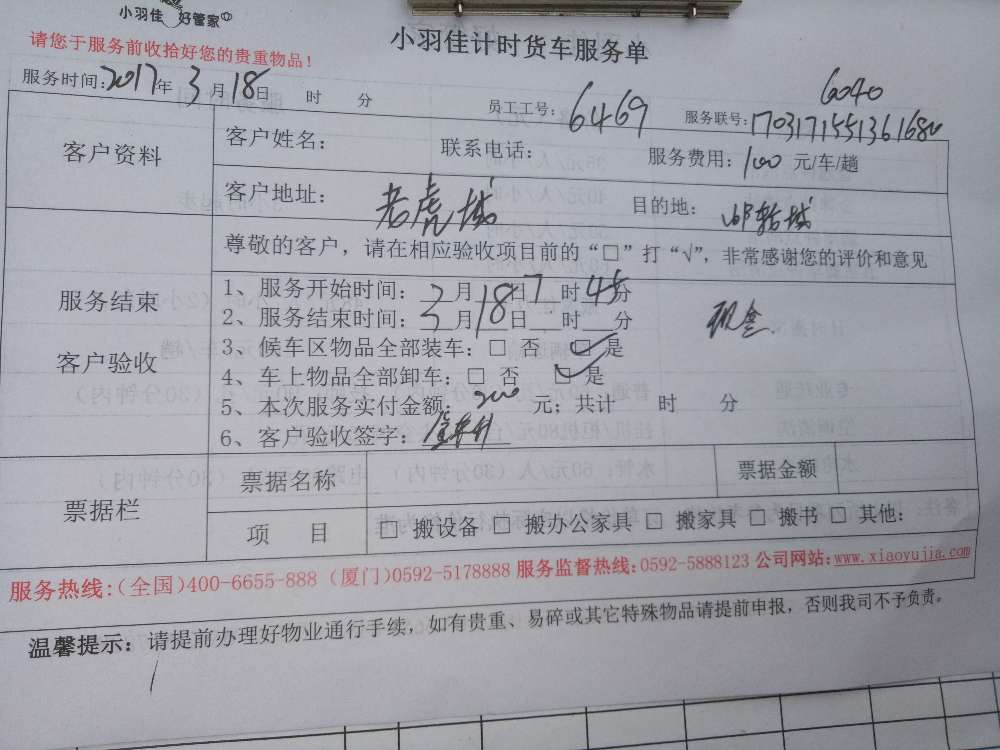 小羽佳 好管家
请您于服务前收拾好您的贵重物品！
小羽佳计时货车服务单
6040
服务时间：2017年3月18日 时 分 员工工号：6469 服务联号：
客户资料
客户姓名： 联系电话： 服务费用：100 元/车/趟
客户地址：老虎城 目的地：
服务结束
客户验收
尊敬的客户，请在相应验收项目前的“□”打“√”，非常感谢您的评价和意见
1、服务开始时间：3月18日7时45分
现金
2、服务结束时间：3月18日___时___分
3、候车区物品全部装车：□ 否 □ 是
4、车上物品全部卸车：□ 否 □ 是
5、本次服务实付金额：200 元；共计 时 分
6、客户验收签字：
票据栏
票据名称 票据金额
项 目 □ 搬设备 □ 搬办公家具 □ 搬家具 □ 搬书 □ 其他：
服务热线：(全国)400-6655-888 (厦门)0592-5178888 服务监督热线：0592-5888123 公司网站：www.xiaoyujia.com
温馨提示：请提前办理好物业通行手续，如有贵重、易碎或其它特殊物品请提前申报，否则我司不予负责。